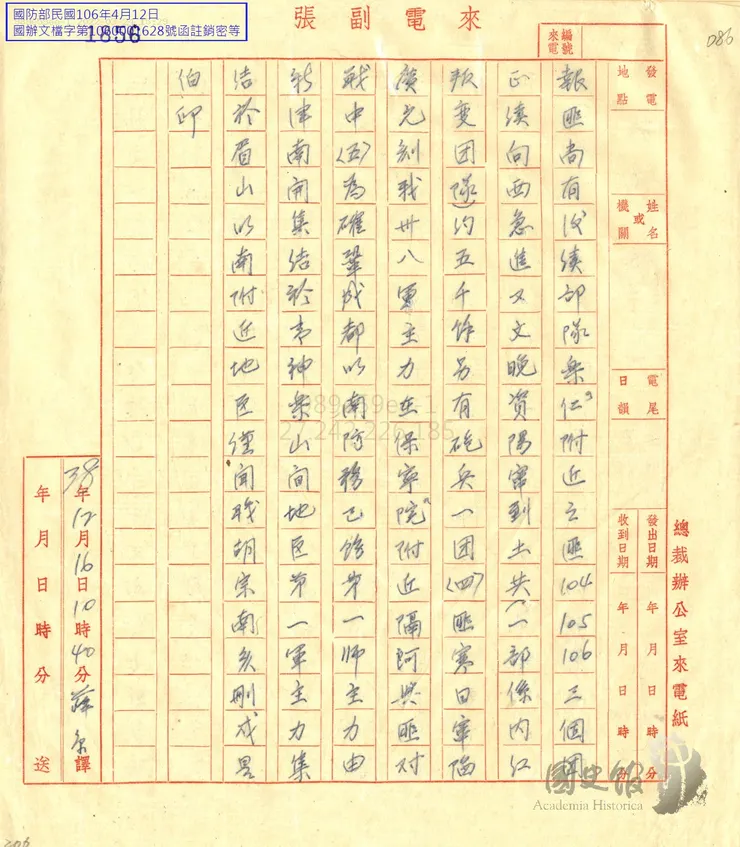 國防部民國106年4月12日
國辦文檔字第1060001628號函註銷密等
1856
來電副張
086
編號
來電
發電
地點
姓名
或
機關
電尾
日韻
發出日期 年 月 日 時 分
收到日期 年 月 日 時 分
總裁辦公室來電紙
報匪尚有後續部隊榮仁附近之匪104 105 106三個團
正續向西急進又文晚資陽竄到土共(一部係內江
叛變团隊)約五千餘另有砲兵一团(四)匪寒日竄陷
廣元刻我卅八軍主力在保寧院附近隔河與匪对
戰中(五)為確鞏成都以南防務已飭第一師主力由
新津南開集結於神山間地区第一軍主力集
結於眉山以南附近地区謹聞職胡宗南亥刪戌
伯印
38年12月16日10時40分薛譯
年月日時分送
27.242.226.185
國史館
Academia Historica
206